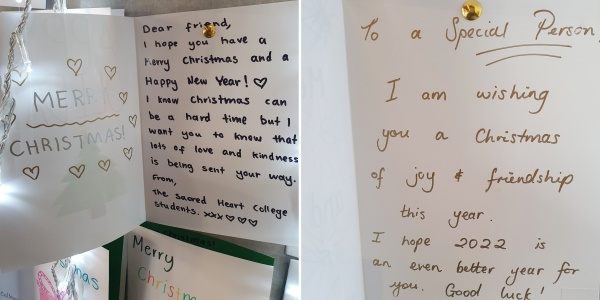 MERRY
CHRISTMAS!
Dear friend,
I hope you have a
Merry Christmas and a
Happy New Year! ♡
I know Christmas can
be a hard time but I
want you to know that
lots of love and kindness
is being sent your way.
From,
The Sacred Heart College
Students. xxx ♡♡♡
Christmas!
Merry
Christm
mas
To a Special Person,
I am wishing
you a Christmas
of joy & friendship
this year.
I hope 2022 is
an even better year for
you. Good luck!